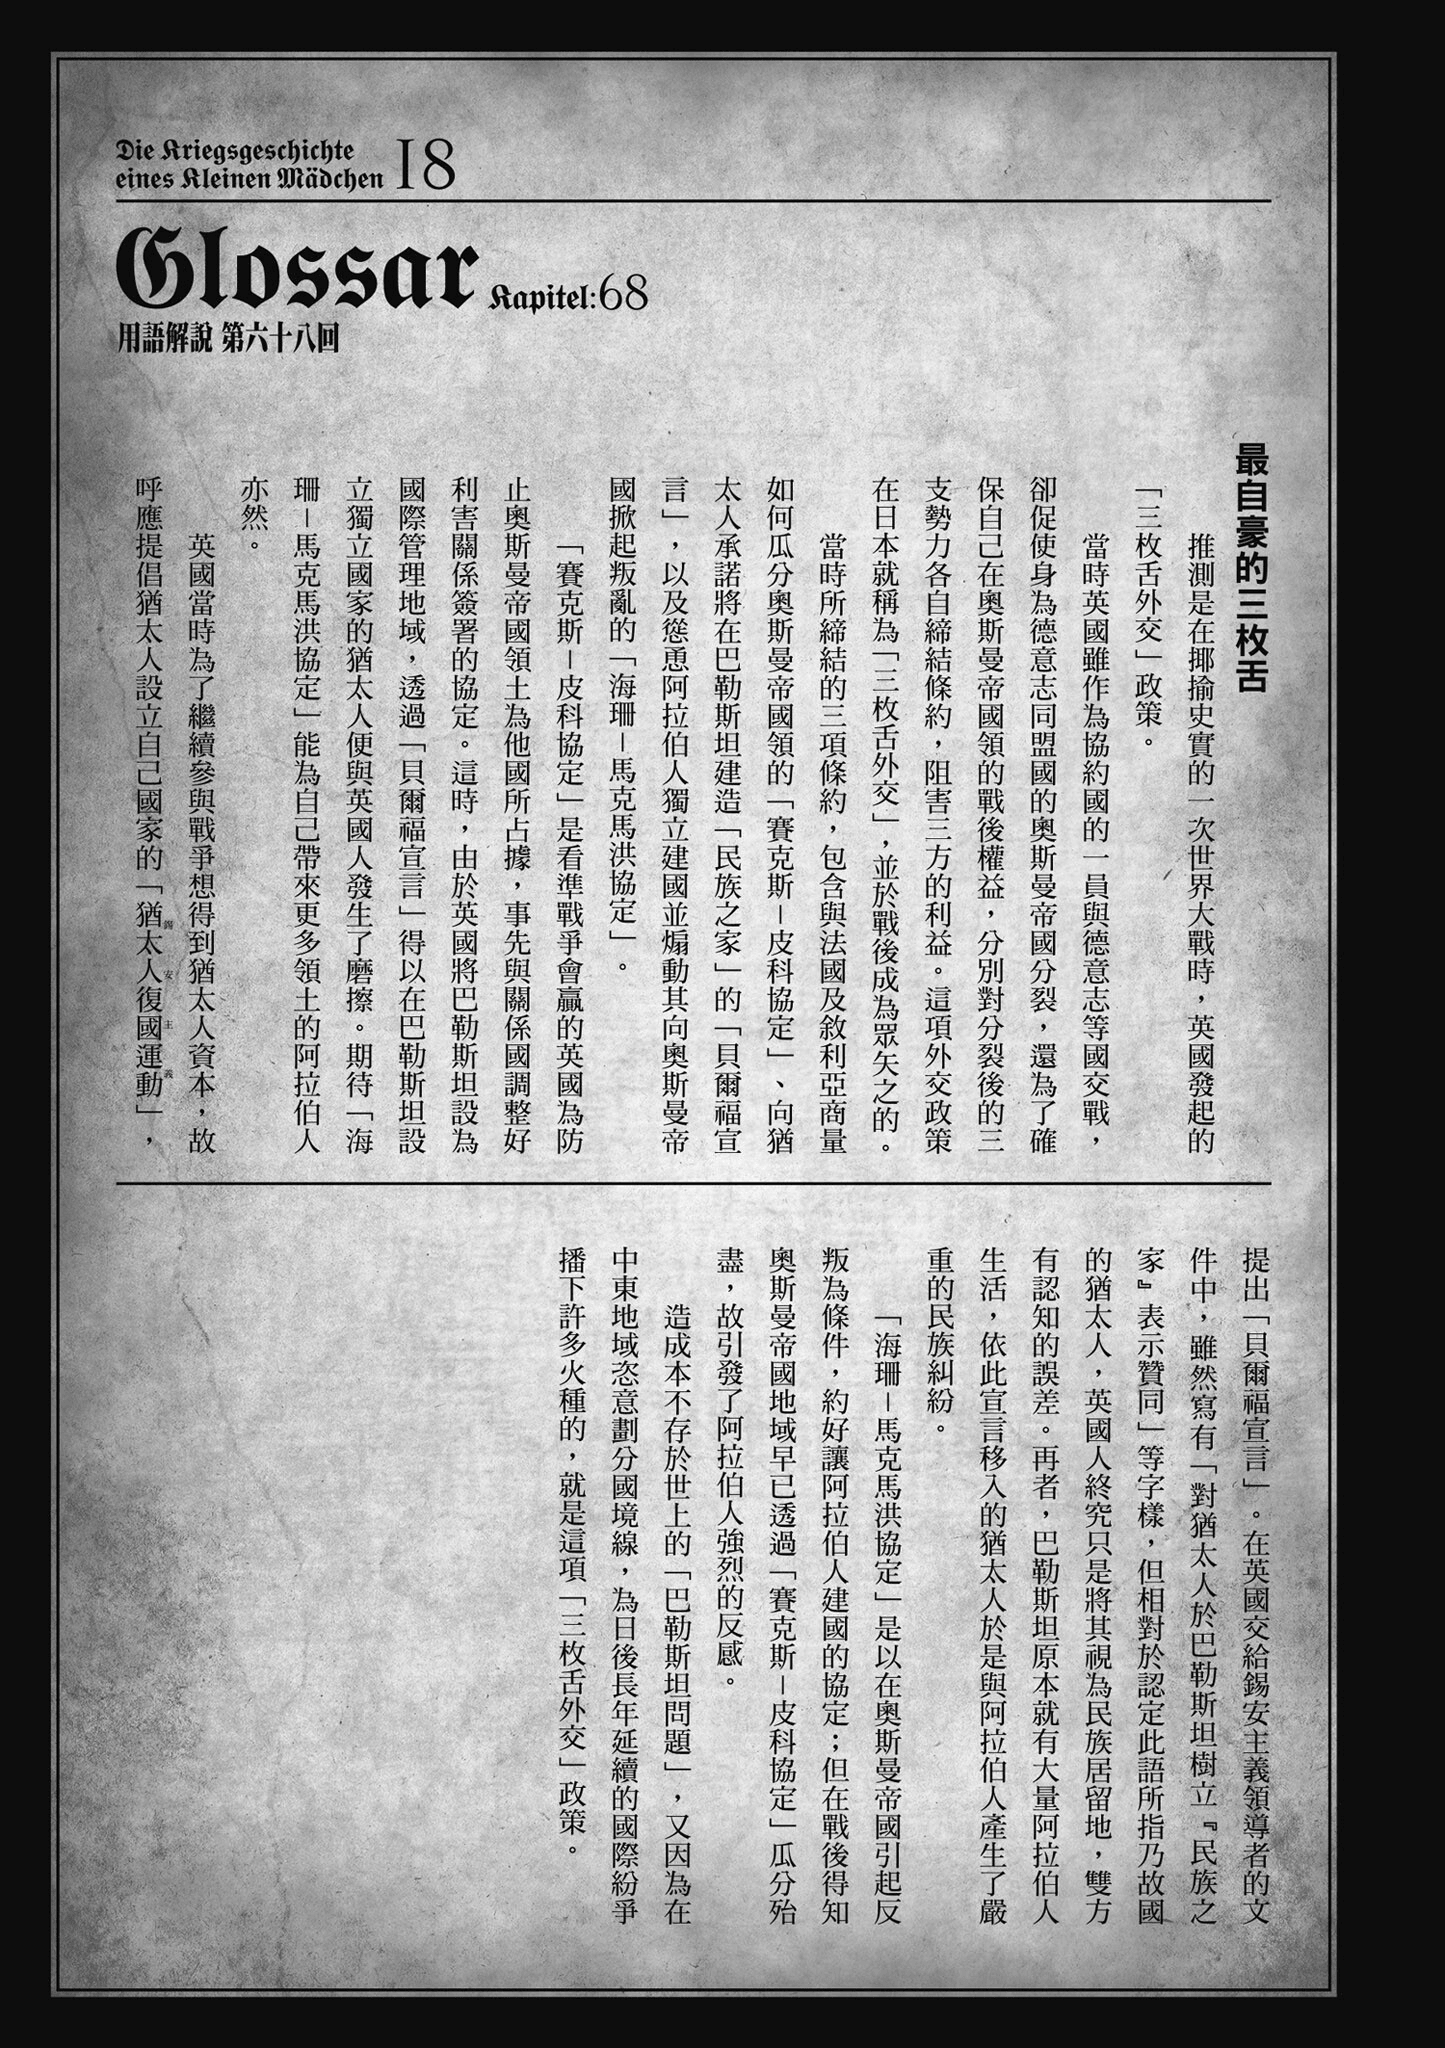 Die Kriegsgeschichte
eines Kleinen Mädchen 18
Glossar Kapitel:68
用語解說 第六十八回
最自豪的三枚舌
推測是在揶揄史實的一次世界大戰時，英國發起的
「三枚舌外交」政策。
當時英國雖作為協約國的一員與德意志等國交戰，
卻促使身為德意志同盟國的奧斯曼帝國分裂，還為了確
保自己在奧斯曼帝國領的戰後權益，分別對分裂後的三
支勢力各自締結條約，阻害三方的利益。這項外交政策
在日本就稱為「三枚舌外交」，並於戰後成為眾矢之的。
當時所締結的三項條約，包含與法國及敘利亞商量
如何瓜分奧斯曼帝國領的「賽克斯－皮科協定」、向猶
太人承諾將在巴勒斯坦建造「民族之家」的「貝爾福宣
言」，以及慫恿阿拉伯人獨立建國並煽動其向奧斯曼帝
國掀起叛亂的「海珊－馬克馬洪協定」。
「賽克斯－皮科協定」是看準戰爭會贏的英國為防
止奧斯曼帝國領土為他國所占據，事先與關係國調整好
利害關係簽署的協定。這時，由於英國將巴勒斯坦設為
國際管理地域，透過「貝爾福宣言」得以在巴勒斯坦設
立獨立國家的猶太人便與英國人發生了磨擦。期待「海
珊－馬克馬洪協定」能為自己帶來更多領土的阿拉伯人
亦然。
英國當時為了繼續參與戰爭想得到猶太人資本，故
呼應提倡猶太人設立自己國家的「猶太人復國運動」，
錫安主義
提出「貝爾福宣言」。在英國交給錫安主義領導者的文
件中，雖然寫有「對猶太人於巴勒斯坦樹立『民族之
家』表示贊同」等字樣，但相對於認定此語所指乃故國
的猶太人，英國人終究只是將其視為民族居留地，雙方
有認知的誤差。再者，巴勒斯坦原本就有大量阿拉伯人
生活，依此宣言移入的猶太人於是與阿拉伯人產生了嚴
重的民族糾紛。
「海珊－馬克馬洪協定」是以在奧斯曼帝國引起反
叛為條件，約好讓阿拉伯人建國的協定；但在戰後得知
奧斯曼帝國地域早已透過「賽克斯－皮科協定」瓜分殆
盡，故引發了阿拉伯人強烈的反感。
造成本不存於世上的「巴勒斯坦問題」，又因為在
中東地域恣意劃分國境線，為日後長年延續的國際紛爭
播下許多火種的，就是這項「三枚舌外交」政策。